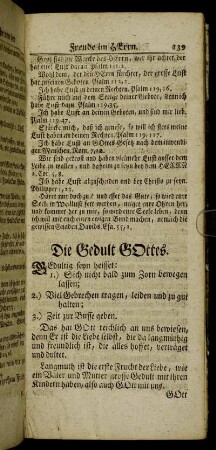 Freude im HErrn. 239
Groß sind die Wercke des HErrn, wer ihr achtet, der
hat eitel Lust daran Psalm 111,2.
Wohl dem, der den HErrn fürchtet, der grosse Lust
hat zu seinen Geboten. Psalm 112,1.
Ich habe Lust zu deinen Rechten. Psalm 119,16.
Führe mich auf dem Steige deiner Gebote, denn ich
habe Lust dazu. Psalm 119,35.
Ich habe Lust an deinen Geboten, und sind mir lieb
Psalm. 119,47.
Stärcke mich, daß ich genese, so will ich stets meine
Lust haben an deinen Rechten. Psalm 119,117.
Ich habe Lust an GOttes Gesetz nach dem inwendi-
gen Menschen. Röm. 7,22.
Wir sind getrost und haben vielmehr Lust ausser dem
Leibe zu wallen, und daheim zu seyn bey dem HErrn
2. Cor. 5,8.
Ich habe Lust abzuscheiden und bey Christo zu seyn.
Philipper 1,23.
Höret mir doch zu und esset das Gute, so wird eure
Seele in Wollust fett werden, neiget eure Ohren her
und kommet her zu mir, so wird eure Seele leben, denn ich
will mit euch einen ewigen Bund machen, nehmlich die
gewissen Gnaden Davids. Esa. 55,2.
Die Gedult GOttes.
Gedultig seyn heisset:
1.) Sich nicht bald zum Zorn bewegen
lassen;
2.) Viel Gebrechen tragen, leiden und zu gut
halten;
3.) Zeit zur Busse geben.
Das hat GOtt reichlich an uns bewiesen,
denn Er ist die Liebe selbst, die da langmüthig
und freundlich ist, die alles hoffet, verträget
und duldet.
Langmuth ist die erste Frucht der Liebe, wie
ein Vater und Mutter grosse Gedult mit ihren
Kindern haben, also auch GOtt mit uns.
GOtt